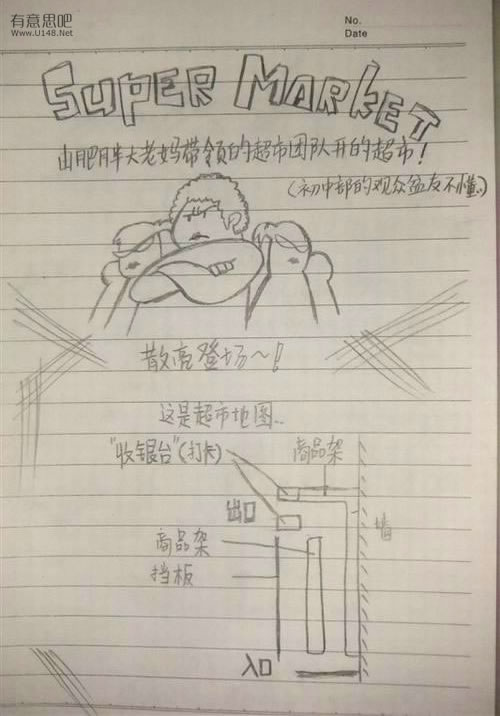 有意思吧
www.U148.Net
No.
Date
SUPER MARKET
由肥胖大老妈带领的超市团队开的超市！
（初中部的观众盆友不懂..）
散亮登场～！
这是超市地图..
"收银台"(打卡)
商品架
出口
墙
商品架
挡板
入口